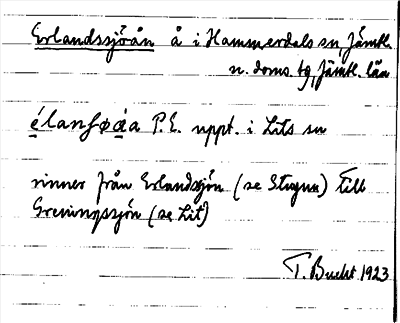 Erlandssjöån å i Hammerdals sn, Jämtl.
n. doms. tg, Jämtl. län
élanʃøa̤a P.E. uppt. i Lits sn
rinner från Erlandsjön (se Stugun) till
Greningssjön (se Lit)
T. Bucht 1923